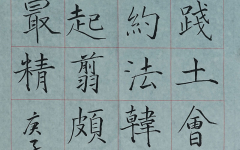 踐土會
約法韓
起翦頗
最精庚子